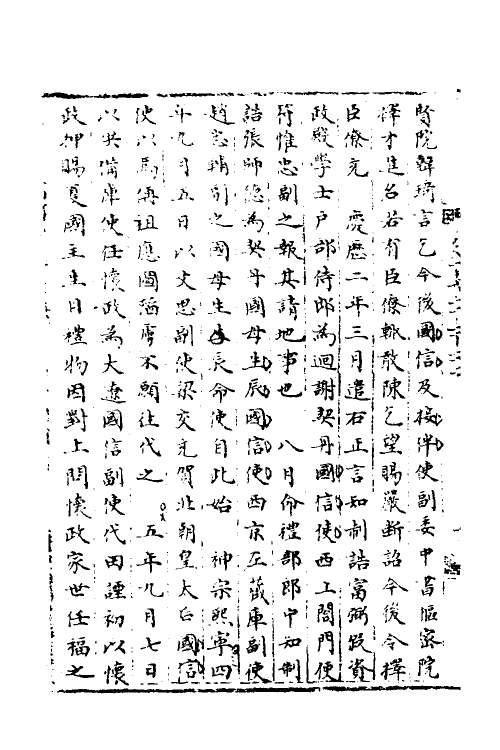 賢院韓琦言乞今後國信及接伴使副委中書樞密院
擇才進名若有臣僚輒敢陳乞望賜嚴斷詔今後令擇
臣僚充　慶曆二年三月遣右正言知制誥富弼假資
政殿學士戶部侍郎為迴謝契丹國信使西上閤門使
符惟忠副之報其請地事也　八月命禮部郎中知制
誥張師德為契丹國母生辰國信使西京左藏庫副使
趙忠輔副之國母生辰長命使自此始　神宗熙寧四
年九月五日以文思副使梁交充賀北朝皇太后國信
使以馬偁祖應圖涵虜不願往代之　五年九月七日
以供備庫使任懷政為大遼國信副使代田諲初以懷
政押賜夏國主生日禮物因對上問懷政家世任福之